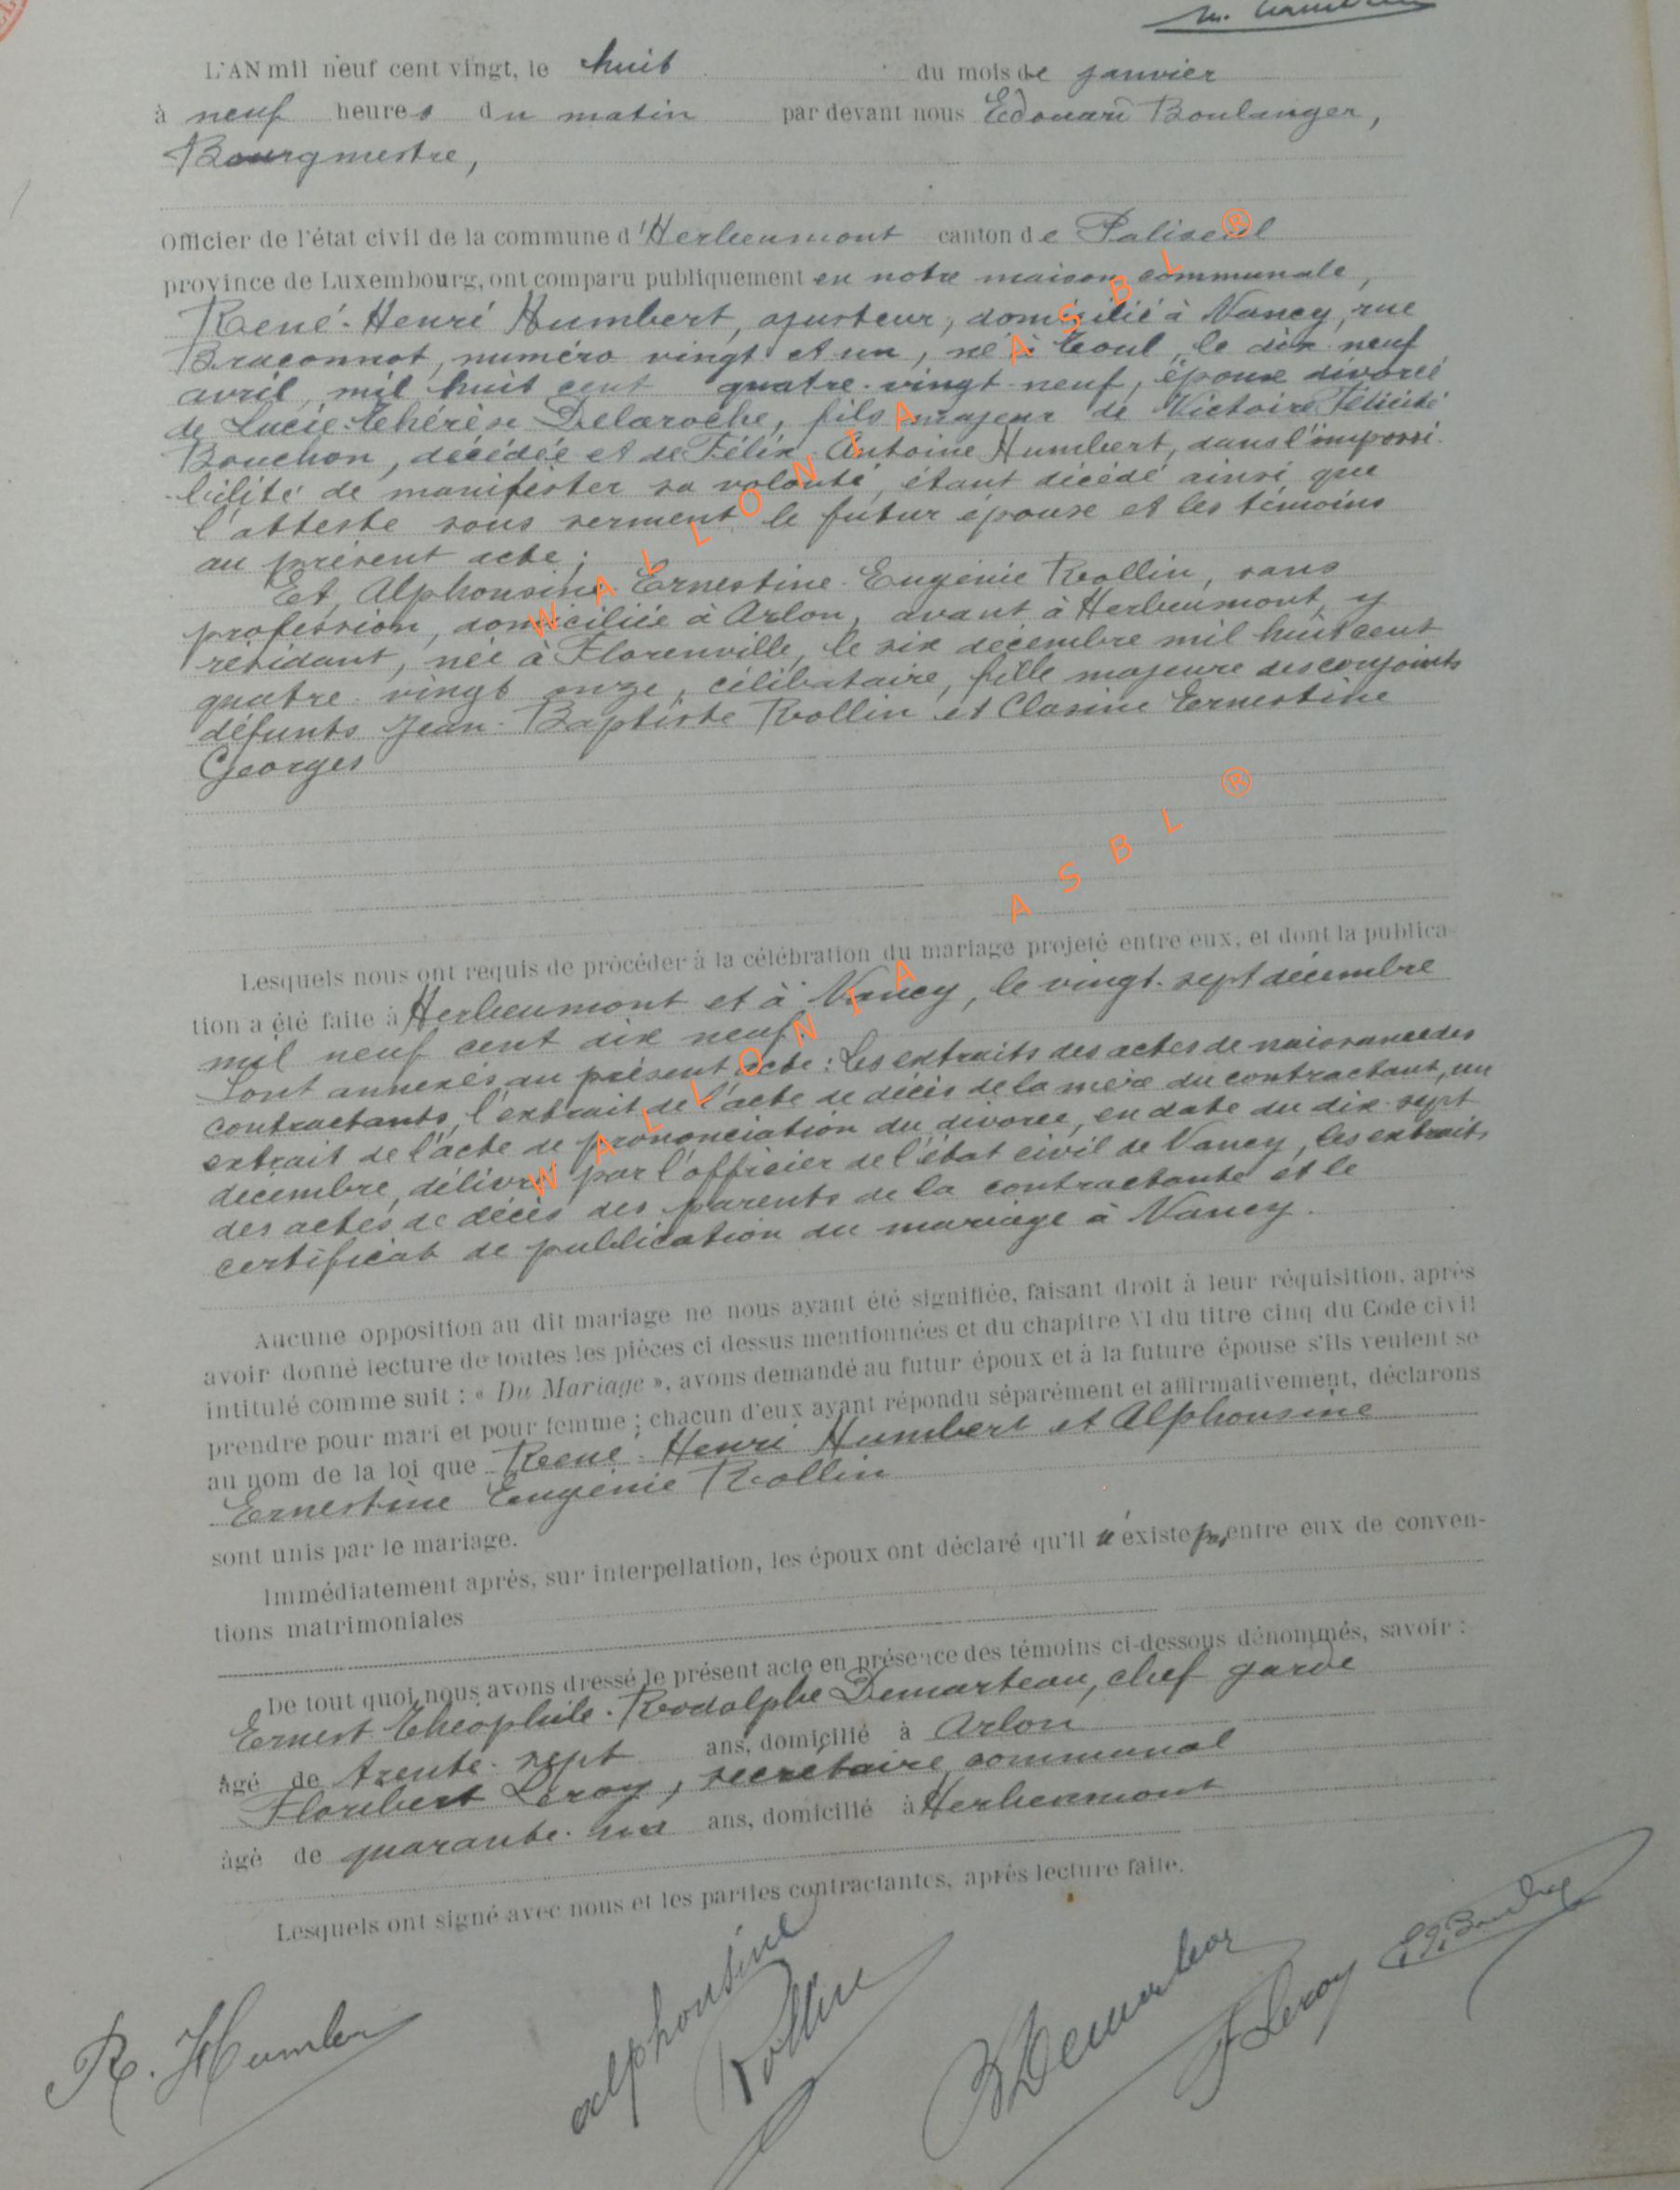 L'AN mil neuf cent vingt, le huit du mois de janvier
à neuf heures du matin par devant nous Edouard Boulanger,
Bourgmestre,
Officier de l'état civil de la commune d'Herbeumont canton de Paliseul
province de Luxembourg, ont comparu publiquement en notre maison communale,
René-Henri Humbert, ajusteur, domicilié à Nancy, rue
Braconnot, numéro vingt et un, né à Toul, le dix neuf
avril, mil huit cent quatre-vingt-neuf, époux divorcé
de Lucie-Thérèse Delaroche, fils majeur de Victoire Félicité
Bouchon, décédée et de Félix-Antoine Humbert, dans l'impossi-
bilité de manifester sa volonté, étant décédé ainsi que
l'atteste sous serment le futur époux et les témoins
au présent acte;
Et, Alphonsine-Ernestine-Eugénie Rollin, sans
profession, domiciliée à Arlon, avant à Herbeumont, y
résidant, née à Florenville, le six décembre mil huit cent
quatre-vingt onze, célibataire, fille majeure des conjoints
défunts Jean-Baptiste Rollin et Clasine Ernestine
Georges
WALLONIA ASBL ®
WALLONIA ASBL ®
Lesquels nous ont requis de procéder à la célébration du mariage projeté entre eux, et dont la publica-
tion a été faite à Herbeumont et à Nancy, le vingt-sept décembre
mil neuf cent dix neuf.
Sont annexés au présent acte: Les extraits des actes de naissance des
contractants, l'extrait de l'acte de décès de la mère du contractant, un
extrait de l'acte de prononciation du divorce, en date du dix-sept
décembre, délivré par l'officier de l'état civil de Nancy, les extraits
des actes de décès des parents de la contractante et le
certificat de publication du mariage à Nancy.
Aucune opposition au dit mariage ne nous ayant été signifiée, faisant droit à leur réquisition, après
avoir donné lecture de toutes les pièces ci dessus mentionnées et du chapitre VI du titre cinq du Code civil
intitulé comme suit : « Du Mariage », avons demandé au futur époux et à la future épouse s'ils veulent se
prendre pour mari et pour femme ; chacun d'eux ayant répondu séparément et affirmativement, déclarons
au nom de la loi que René-Henri Humbert et Alphonsine
Ernestine Eugénie Rollin
sont unis par le mariage.
Immédiatement après, sur interpellation, les époux ont déclaré qu'il n'existe pas entre eux de conven-
tions matrimoniales
De tout quoi nous avons dressé le présent acte en présence des témoins ci-dessous dénommés, savoir :
Ernest-Théophile-Rodolphe Demarteau, chef garde
âgé de trente-sept ans, domicilié à Arlon
Floribert Leroy, secrétaire communal
âgé de quarante- ans, domicilié à Herbeumont
Lesquels ont signé avec nous et les parties contractantes, après lecture faite.
R. Humbert
alphonsine
Rollin
Demarteau
F Leroy